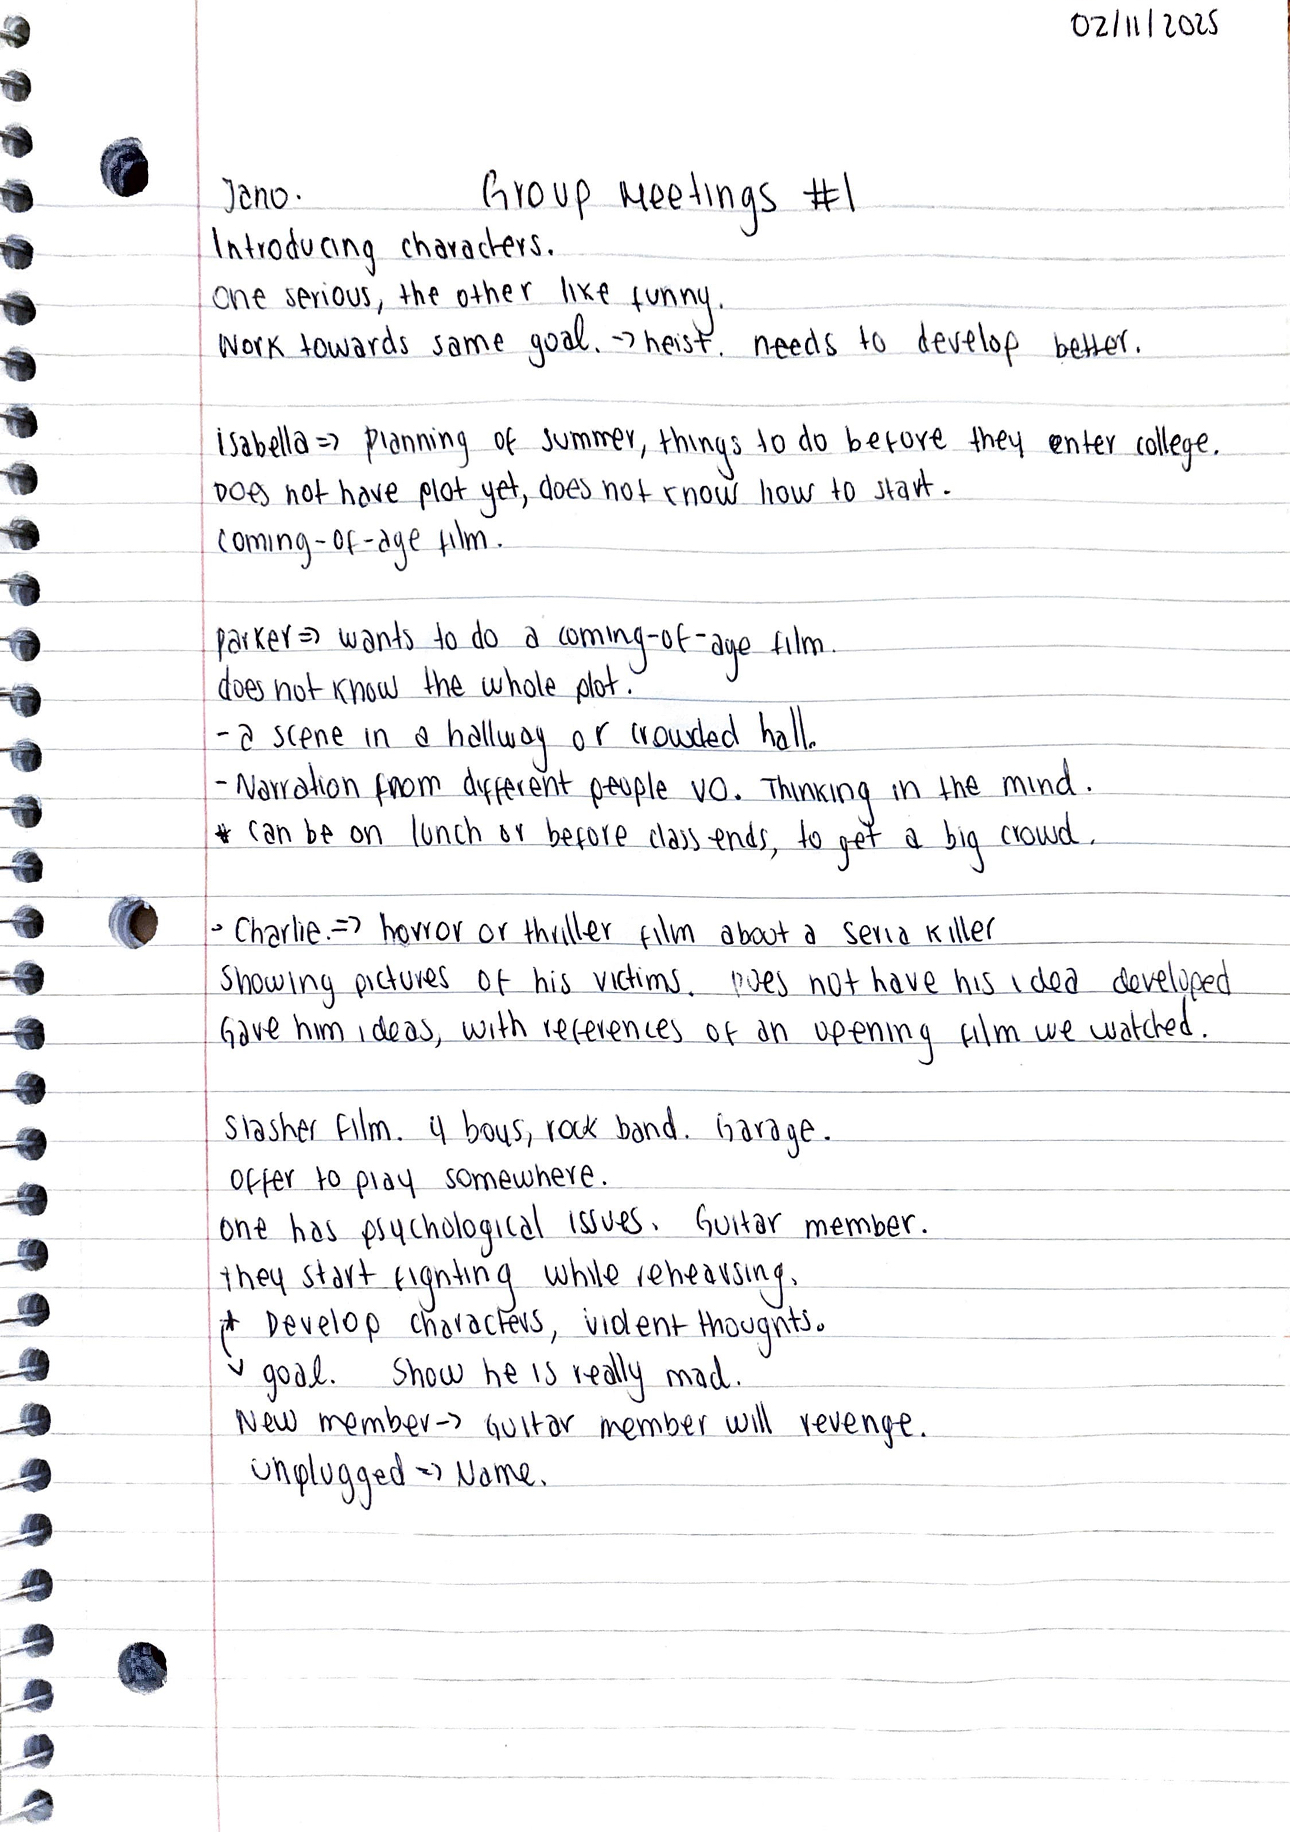 02/11/2025
Jano. Group Meetings #1
Introducing characters.
One serious, the other like funny.
Work towards same goal. -> heist. needs to develop better.
isabella => Planning of summer, things to do before they enter college.
Does not have plot yet, does not know how to start.
coming-of-age film.
parker => wants to do a coming-of-age film.
does not know the whole plot.
- a scene in a hallway or crowded hall.
- Narration from different people VO. Thinking in the mind.
* can be on lunch or before class ends, to get a big crowd.
• Charlie. => horror or thriller film about a seria killer
showing pictures of his victims. Does not have his idea developed
Gave him ideas, with references of an opening film we watched.
Slasher Film. 4 boys, rock band. Garage.
Offer to play somewhere.
One has psychological issues. Guitar member.
they start fighting while rehearsing.
* Develop characters, violent thoughts.
↓ goal. Show he is really mad.
New member -> Guitar member will revenge.
Unplugged => Name.